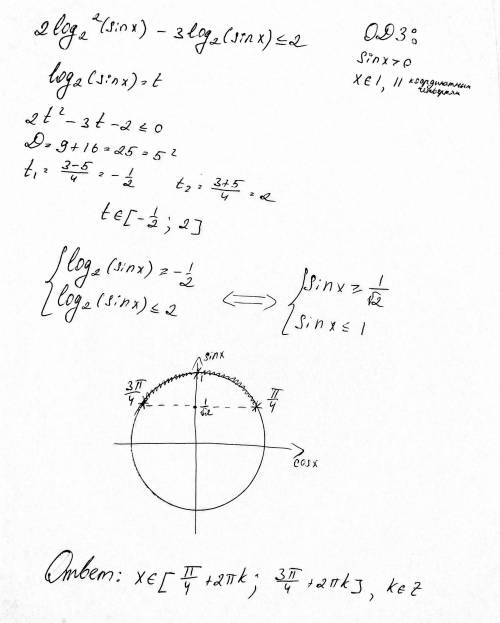 2log₂²(sinx) - 3log₂(sinx) ≤ 2
ОДЗ:
sinx>0
x∈I, II координатным
log₂(sinx) = t
2t² - 3t - 2 ≤ 0
D = 9+16 = 25 = 5²
t₁ = (3-5)/4 = -1/2 t₂ = (3+5)/4 = 2
t∈[-1/2; 2]
{ log₂(sinx) ≥ -1/2
log₂(sinx) ≤ 2
⟺
{ sinx ≥ 1/√2
sinx ≤ 1
sinx
1
3π/4
π/4
1/√2
cosx
Ответ: x∈[π/4 + 2πk; 3π/4 + 2πk], k∈Z